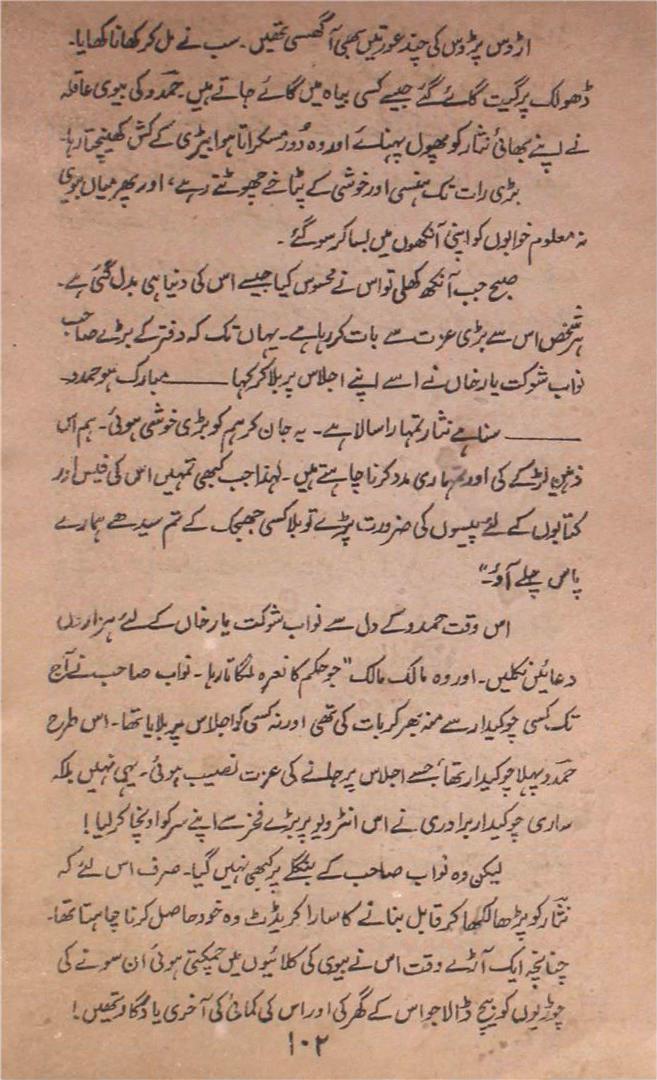 اڑوس پڑوس کی چند عورتیں بھی آ گھسی تھیں۔ سب نے مل کر کھانا کھایا۔
ڈھولک پر گیت گائے گئے جیسے کسی بیاہ میں گائے جاتے ہیں۔ حمدو کی بیوی عاقلہ
نے اپنے بھائی نثار کو پھول پہنائے اور وہ دُور مسکراتا ہوا بیڑی کے کش کھینچتا رہا۔
بڑی رات تک ہنسی اور خوشی کے پٹاخے چھوٹتے رہے، اور پھر میاں بیوی
نہ معلوم خوابوں کو اپنی آنکھوں میں بسا کر سو گئے۔
صبح جب آنکھ کھلی تو اس نے محسوس کیا جیسے اس کی دنیا ہی بدل گئی ہے۔
ہر شخص اس سے بڑی عزت سے بات کر رہا ہے۔ یہاں تک کہ دفتر کے بڑے صاحب
نواب شوکت یار خاں نے اسے اپنے اجلاس پر بلا کر کہا ——— مبارک ہو حمدو۔
——— سنا ہے نثار تمہارا سالا ہے۔ یہ جان کر ہم کو بڑی خوشی ہوئی۔ ہم اس
ذہین لڑکے کی اور تمہاری مدد کرنا چاہتے ہیں۔ لہٰذا جب کبھی تمہیں اس کی فیس اور
کتابوں کے لئے پیسوں کی ضرورت پڑے تو بلا کسی جھجک کے تم سیدھے ہمارے
پاس چلے آؤ۔"
اس وقت حمدو کے دل سے نواب شوکت یار خاں کے لئے ہزاروں
دعائیں نکلیں۔ اور وہ مالک مالک "جو حکم کا نعرہ لگاتا رہا۔ نواب صاحب نے آج
تک کسی چوکیدار سے منہ بھر کر بات کی تھی اور نہ کسی کو اجلاس پر بلایا تھا۔ اس طرح
حمدو پہلا چوکیدار تھا جسے اجلاس پر جانے کی عزت نصیب ہوئی۔ یہی نہیں بلکہ
ساری چوکیدار برادری نے اس انٹرویو پر بڑے فخر سے اپنے سر کو اونچا کر لیا!
لیکن وہ نواب صاحب کے بنگلے پر کبھی نہیں گیا۔ صرف اس لئے کہ
نثار کو پڑھا لکھا کر قابل بنانے کا سارا کریڈٹ وہ خود حاصل کرنا چاہتا تھا۔
چنانچہ ایک آڑے وقت اس نے بیوی کی کلائیوں میں چمکتی ہوئی ان سونے کی
چوڑیوں کو بیچ ڈالا جو اس کے گھر کی اور اس کی کمائی کی آخری یادگار تھیں!
۱۰۲